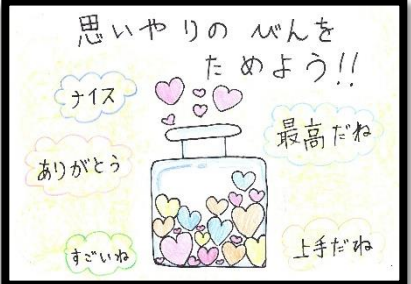 思いやりのびんを
ためよう!!
ナイス
最高だね
ありがとう
すごいね
上手だね